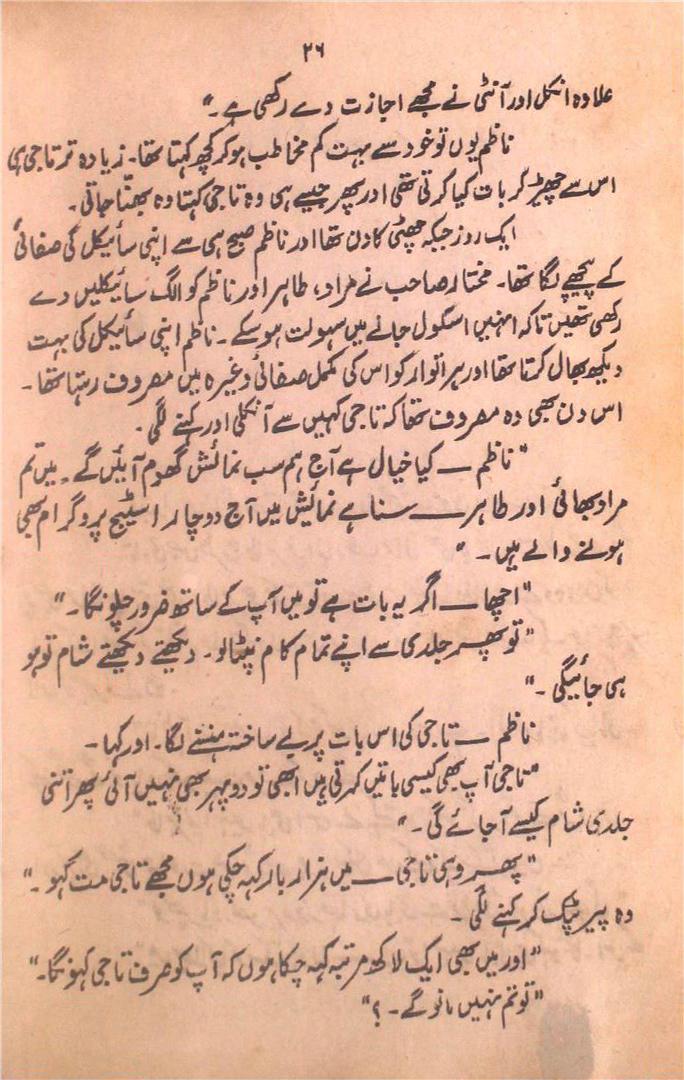 ۳۶
علاوہ انکل اور آنٹی نے مجھے اجازت دے رکھی ہے۔"
ناظم یوں تو خود سے بہت کم مخاطب ہو کر کچھ کہتا تھا۔ زیادہ تر تاجی ہی
اس سے چھیڑ کر بات کیا کرتی تھی اور پھر جیسے ہی وہ تاجی کہتا وہ بھنّا جاتی۔
ایک روز جبکہ چھٹی کا دن تھا اور ناظم صبح ہی سے اپنی سائیکل کی صفائی
کے پیچھے لگا تھا۔ مختار صاحب نے مراد، طاہر اور ناظم کو الگ سائیکلیں دے
رکھی تھیں تاکہ انہیں اسکول جانے میں سہولت ہو سکے۔ ناظم اپنی سائیکل کی بہت
دیکھ بھال کرتا تھا اور ہر اتوار کو اس کی مکمل صفائی وغیرہ میں مصروف رہتا تھا۔
اس دن بھی وہ مصروف تھا کہ تاجی کہیں سے آنکلی اور کہنے لگی۔
"ناظم — کیا خیال ہے آج ہم سب نمائش گھوم آئیں گے۔ میں تم
مراد بھائی اور طاہر — سنا ہے نمائیش میں آج دو چار اسٹیج پروگرام بھی
ہونے والے ہیں۔"
"اچھا — اگر یہ بات ہے تو میں آپ کے ساتھ ضرور چلونگا۔"
"تو پھر جلدی سے اپنے تمام کام نپٹالو۔ دیکھتے دیکھتے شام تو ہو
ہی جائیگی۔"
ناظم — تاجی کی اس بات پر بے ساختہ ہنسنے لگا۔ اور کہا۔
"تاجی آپ بھی کیسی باتیں کرتی ہیں ابھی تو دوپہر بھی نہیں آئی پھر اتنی
جلدی شام کیسے آ جائے گی۔"
"پھر وہی تاجی — میں ہزار بار کہہ چکی ہوں مجھے تاجی مت کہو۔"
وہ پیر پٹک کر کہنے لگی۔
"اور میں بھی ایک لاکھ مرتبہ کہہ چکا ہوں کہ آپ کو صرف تاجی کہونگا۔"
"تو تم نہیں مانو گے۔؟"